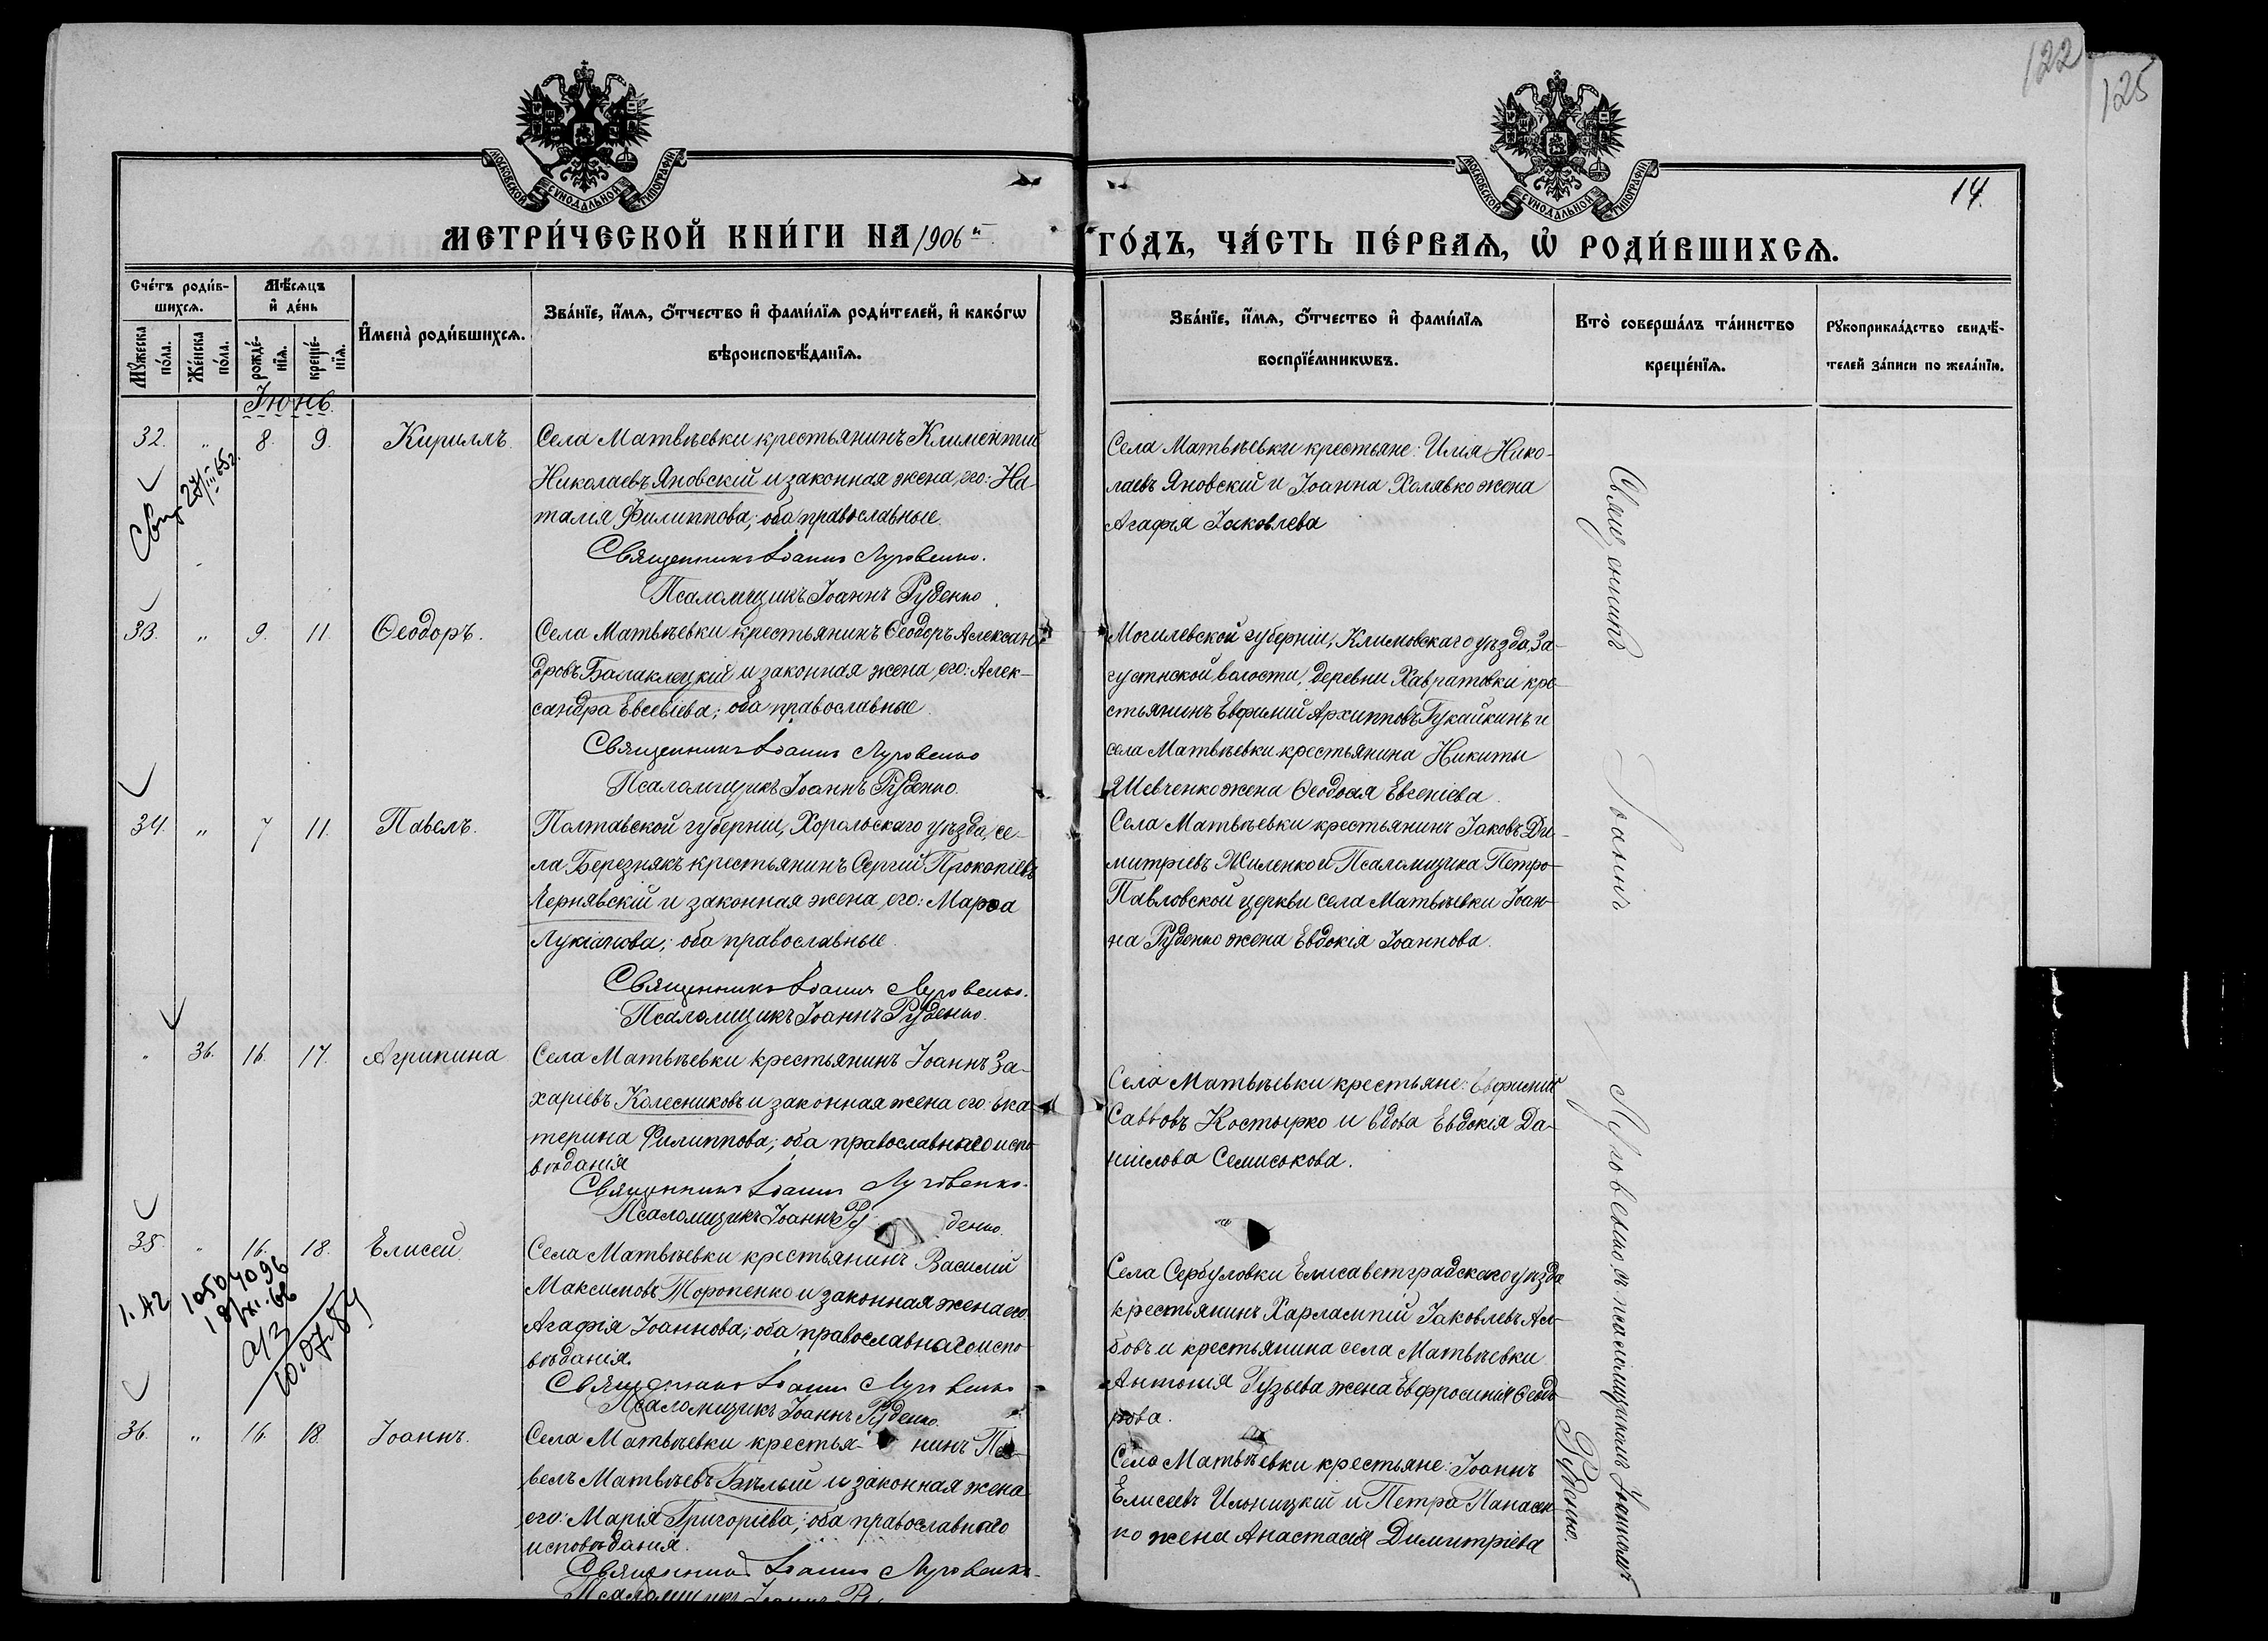 122
125
14.
МОСКОВСКОЙ СѴНОДАЛЬНОЙ ТИПОГРАФІИ
МОСКОВСКОЙ СѴНОДАЛЬНОЙ ТИПОГРАФІИ
МЕТРИ́ЧЕСКОЙ КНИ́ГИ НА 1906й
ГО́ДЪ, ЧА́СТЬ ПЕ́РВАѦ, Ѡ҆ РОДИ́ВШИХСѦ.
Сче́тъ роди́в-
шихсѧ.
Мѣ́сѧцъ
и҆ де́нь
Мꙋ́жеска
по́ла.
Же́нска
по́ла.
рожде́-
нїѧ.
креще́-
нїѧ.
И҆мена̀ роди́вшихсѧ.
Зва́нїе, и҆́мѧ, ѻ҆́тчество и҆ фами́лїѧ роди́телей, и҆ како́гѡ
вѣроисповѣ́данїѧ.
Зва́нїе, и҆́мѧ, ѻ҆́тчество и҆ фами́лїѧ
воспрїе́мникѡвъ.
Кто̀ соверша́лъ та́инство
креще́нїѧ.
Рꙋкоприкла́дство свидѣ́-
телей за́писи по жела́нїю.
Іюнь.
32. " 8. 9. Кириллъ.
Села Матвѣевки крестьянинъ Климентий
Николаевъ Яновскій и законная жена его: На-
талія Филиппова; оба православные.
Священникъ Іоаннъ Луговенко.
Псаломщикъ Іоаннъ Руденко
Села Матвѣевки крестьяне: Илія Нико-
лаевъ Яновскій и Іоанна Халявко жена
Агафія Іаковлева
27/III 65 г.
33. " 9. 11. Ѳеодоръ.
Села Матвѣевки крестьянинъ Ѳеодоръ Алексан-
дровъ Балаклецкій и законная жена его: Алек-
сандра Евсевіева; оба православные.
Священникъ Іоаннъ Луговенко
Псаломщикъ Іоаннъ Руденко.
Могилевской губерніи, Климовскаго уѣзда, За-
густнской волости, деревни Хавратовки кре-
стьянинъ Евфимій Архипповъ Гукайкинъ и
села Матвѣевки крестьянина Никиты
Шевченко жена Ѳеодосія Евгеніева.
34. " 7 11. Павелъ.
Полтавской губерніи, Хорольскаго уѣзда, се-
ла Березнякъ крестьянинъ Сергій Прокопіевъ
Чернявскій и законная жена его: Марѳа
Лукіанова; оба православные.
Священникъ Іоаннъ Луговенко.
Псаломщикъ Іоаннъ Руденко.
Села Матвѣевки крестьянинъ Іаковъ Ди-
митріевъ Жиленко и Псаломщика Петро-
Павловской церкви села Матвѣевки Іоан-
на Руденко жена Евдокія Іоаннова.
" 36. 16. 17. Агрипина
Села Матвѣевки крестьянинъ Іоаннъ За-
харіевъ Колесниковъ и законная жена его: Ека-
терина Филиппова; оба православнаго испо-
вѣданія
Священникъ Іоаннъ Луговенко.
Псаломщикъ Іоаннъ Руденко.
Села Матвѣевки крестьяне: Евфимій
Саввовъ Костырко и вдова Евдокія Да-
ніилова Семисокова.
35. " 16. 18. Елисей
Села Матвѣевки крестьянинъ Василій
Максимовъ Торопенко и законная жена его:
Агафія Іоаннова; оба православнаго испо-
вѣданія.
Священникъ Іоаннъ Луговенко
Псаломщикъ Іоаннъ Руденко.
Села Сербуловки Елисаветградскаго уѣзда
крестьянинъ Харлампій Іаковлевъ Ал-
бовъ и крестьянина села Матвѣевки
Антонія Гузьева жена Евфросинія Ѳеодо-
рова.
10.07.84
36. " 16. 18. Іоаннъ.
Села Матвѣевки крестьянинъ Па-
велъ Матвѣевъ Бѣлый и законная жена
его: Марія Григоріева; оба православнаго
исповѣданія.
Священникъ Іоаннъ Луговенко.
Псаломщикъ Іоаннъ
Села Матвѣевки крестьяне: Іоаннъ
Елисеевъ Ильницкій и Петра Панасен-
ко жена Анастасія Димитріева
Священникъ Іоаннъ Луговенко, съ псаломщикомъ Іоанномъ
Руденко.